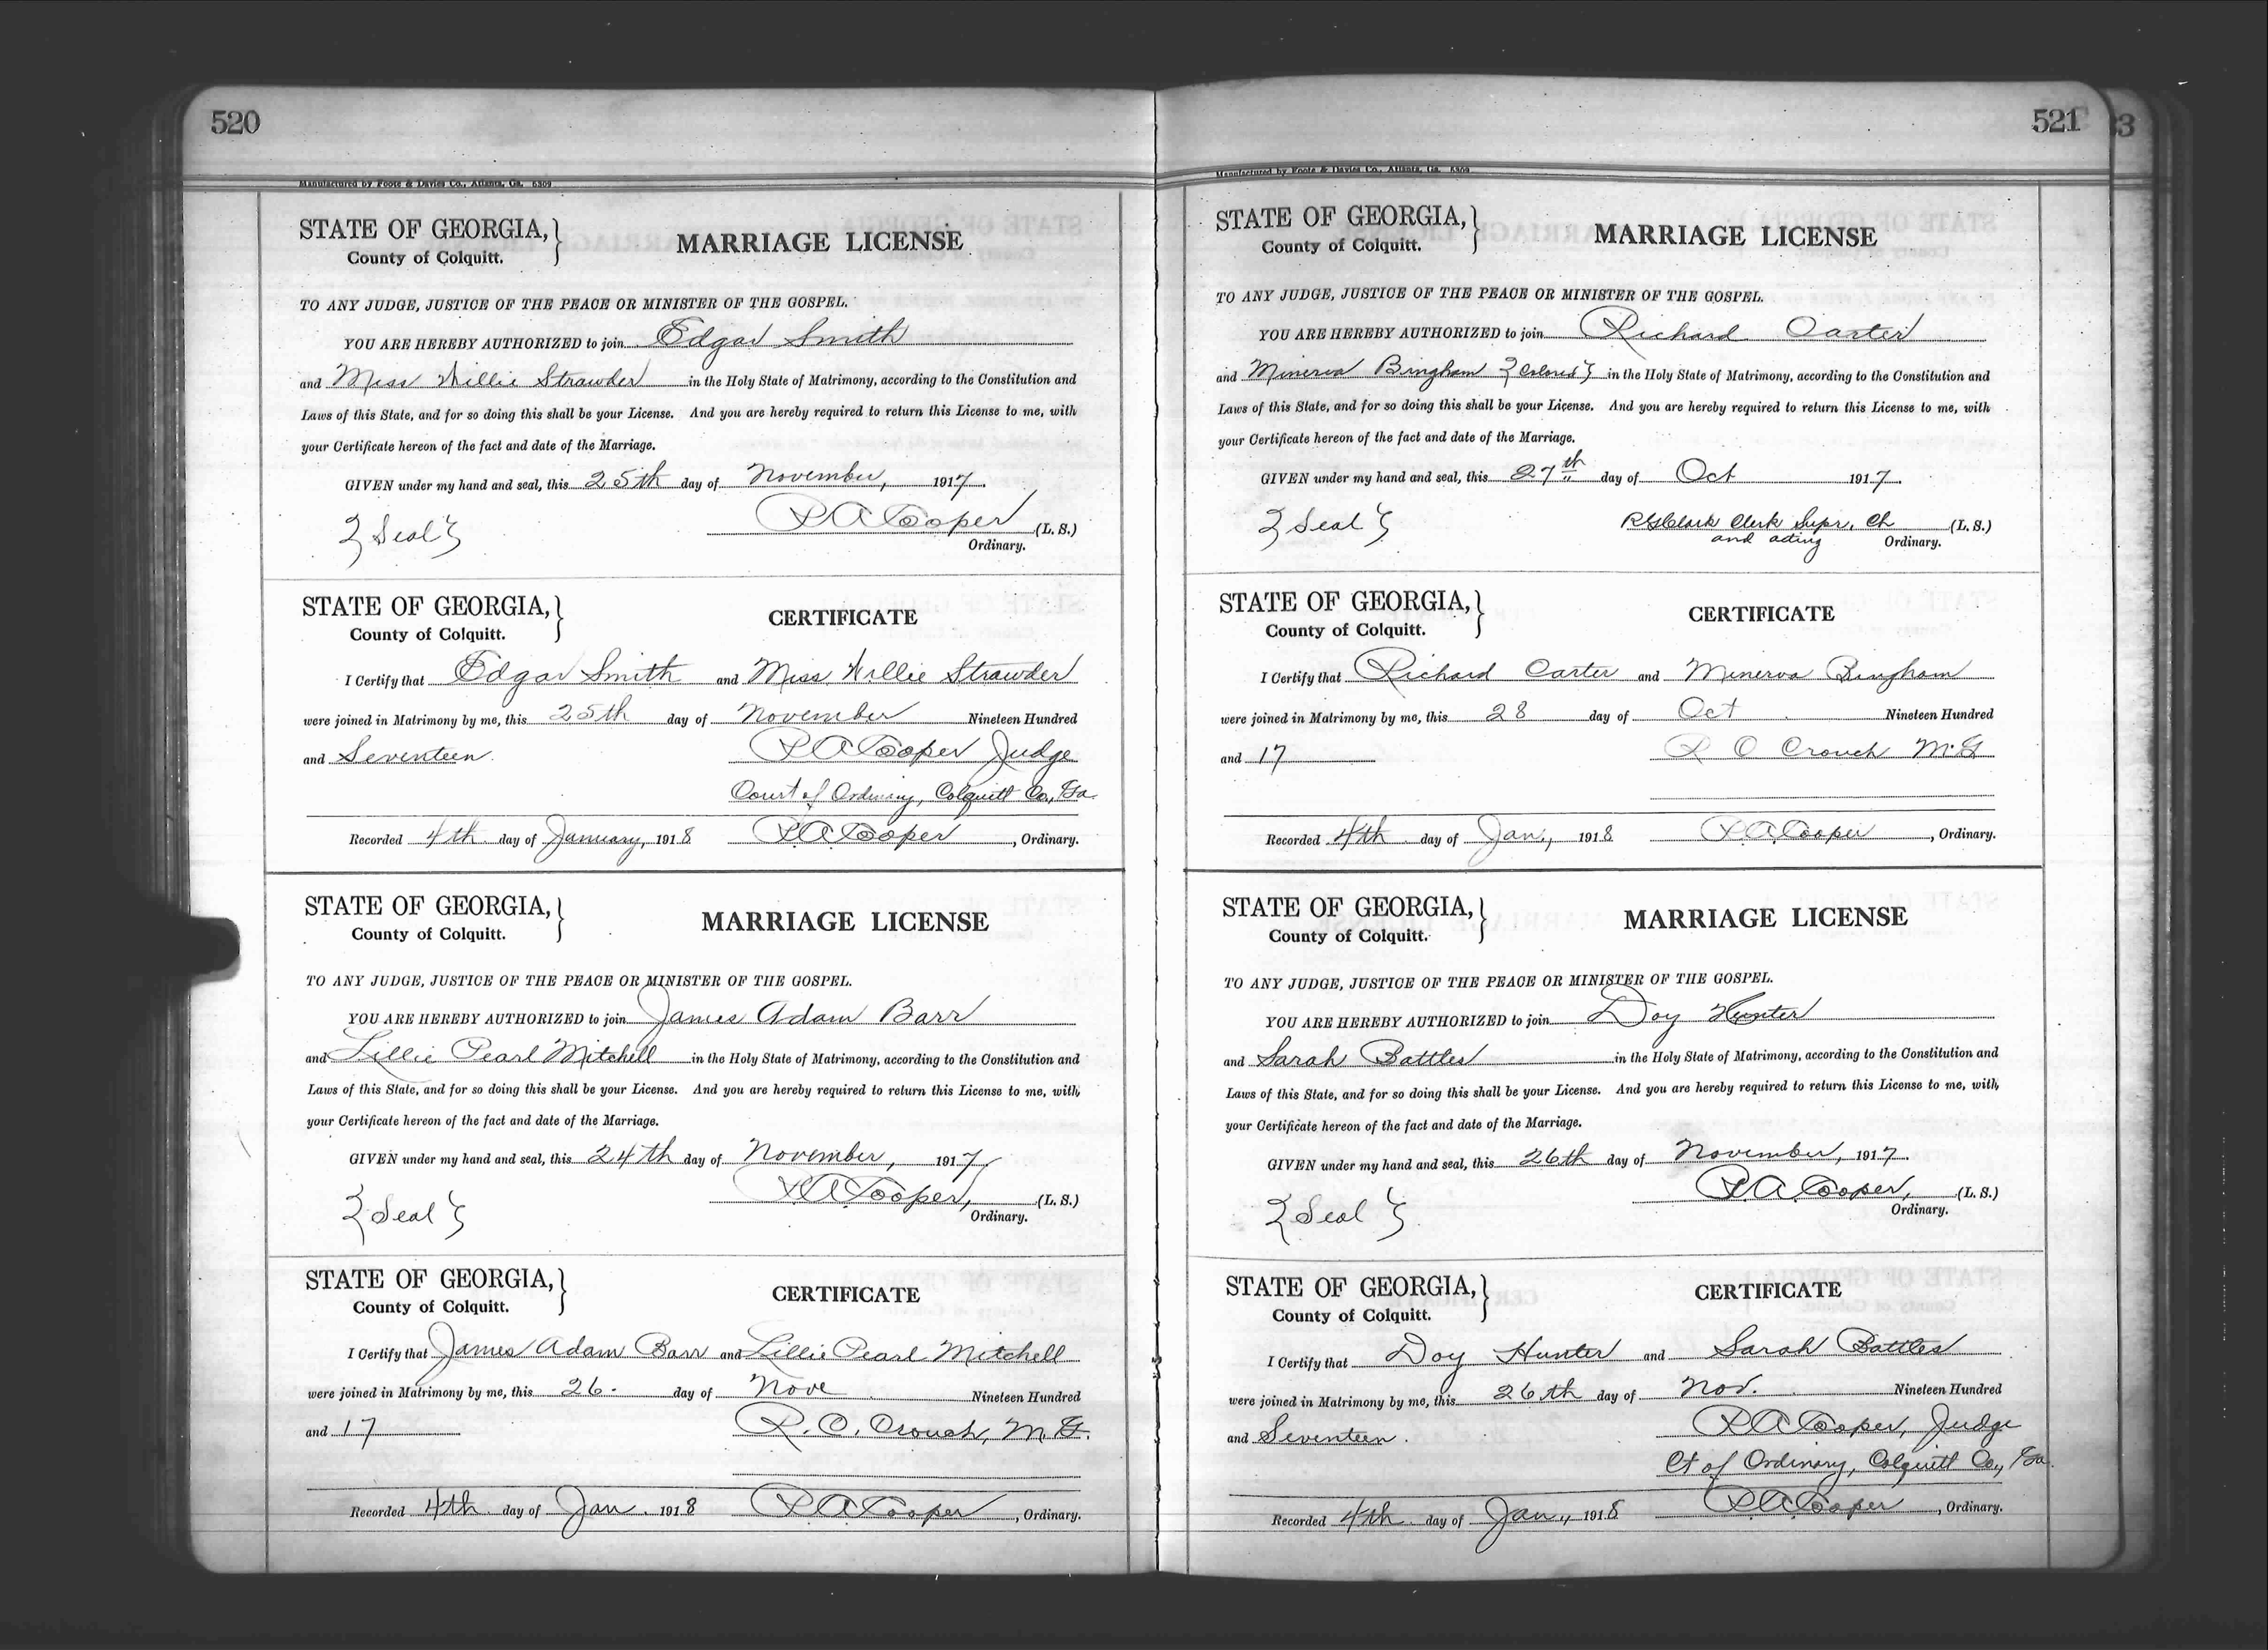 520
Manufactured by Foote & Davies Co., Atlanta, Ga. 6309
STATE OF GEORGIA,
County of Colquitt.
MARRIAGE LICENSE
TO ANY JUDGE, JUSTICE OF THE PEACE OR MINISTER OF THE GOSPEL.
YOU ARE HEREBY AUTHORIZED to join Edgar Smith
and Miss Willie Strawder in the Holy State of Matrimony, according to the Constitution and
Laws of this State, and for so doing this shall be your License. And you are hereby required to return this License to me, with
your Certificate hereon of the fact and date of the Marriage.
GIVEN under my hand and seal, this 25th day of November, 1917.
{Seal} P A Cooper (L. S.)
Ordinary.
STATE OF GEORGIA,
County of Colquitt.
CERTIFICATE
I Certify that Edgar Smith and Miss Willie Strawder
were joined in Matrimony by me, this 25th day of November Nineteen Hundred
and Seventeen. P A Cooper Judge
Court of Ordinary, Colquitt Co, Ga.
Recorded 4th day of January, 1918 P A Cooper, Ordinary.
STATE OF GEORGIA,
County of Colquitt.
MARRIAGE LICENSE
TO ANY JUDGE, JUSTICE OF THE PEACE OR MINISTER OF THE GOSPEL.
YOU ARE HEREBY AUTHORIZED to join James Adam Barr
and Lillie Pearl Mitchell in the Holy State of Matrimony, according to the Constitution and
Laws of this State, and for so doing this shall be your License. And you are hereby required to return this License to me, with
your Certificate hereon of the fact and date of the Marriage.
GIVEN under my hand and seal, this 24th day of November, 1917.
{Seal} P A Cooper, (L. S.)
Ordinary.
STATE OF GEORGIA,
County of Colquitt.
CERTIFICATE
I Certify that James Adam Barr and Lillie Pearl Mitchell
were joined in Matrimony by me, this 26. day of Nove Nineteen Hundred
and 17 R. O. Crouch, M. G.
Recorded 4th day of Jan. 1918 P A Cooper, Ordinary.
521
3
Manufactured by Foote & Davies Co., Atlanta, Ga. 6309
STATE OF GEORGIA,
County of Colquitt.
MARRIAGE LICENSE
TO ANY JUDGE, JUSTICE OF THE PEACE OR MINISTER OF THE GOSPEL.
YOU ARE HEREBY AUTHORIZED to join Richard Carter
and Minerva Bingham {Colored} in the Holy State of Matrimony, according to the Constitution and
Laws of this State, and for so doing this shall be your License. And you are hereby required to return this License to me, with
your Certificate hereon of the fact and date of the Marriage.
GIVEN under my hand and seal, this 27th day of Oct 1917.
{Seal} Clark Clerk Supr. Ct (L. S.)
and acting Ordinary.
STATE OF GEORGIA,
County of Colquitt.
CERTIFICATE
I Certify that Richard Carter and Minerva Bingham
were joined in Matrimony by me, this 28 day of Oct Nineteen Hundred
and 17 R O Crouch M.G
Recorded 4th day of Jan, 1918 P. A. Cooper, Ordinary.
STATE OF GEORGIA,
County of Colquitt.
MARRIAGE LICENSE
TO ANY JUDGE, JUSTICE OF THE PEACE OR MINISTER OF THE GOSPEL.
YOU ARE HEREBY AUTHORIZED to join Doy Hunter
and Sarah Battles in the Holy State of Matrimony, according to the Constitution and
Laws of this State, and for so doing this shall be your License. And you are hereby required to return this License to me, with
your Certificate hereon of the fact and date of the Marriage.
GIVEN under my hand and seal, this 26th day of November, 1917.
{Seal} P. A. Cooper, (L. S.)
Ordinary.
STATE OF GEORGIA,
County of Colquitt.
CERTIFICATE
I Certify that Doy Hunter and Sarah Battles
were joined in Matrimony by me, this 26th day of Nov. Nineteen Hundred
and Seventeen. P A Cooper, Judge
Ct of Ordinary, Colquitt Co, Ga.
Recorded 4th day of Jan, 1918 P A Cooper, Ordinary.